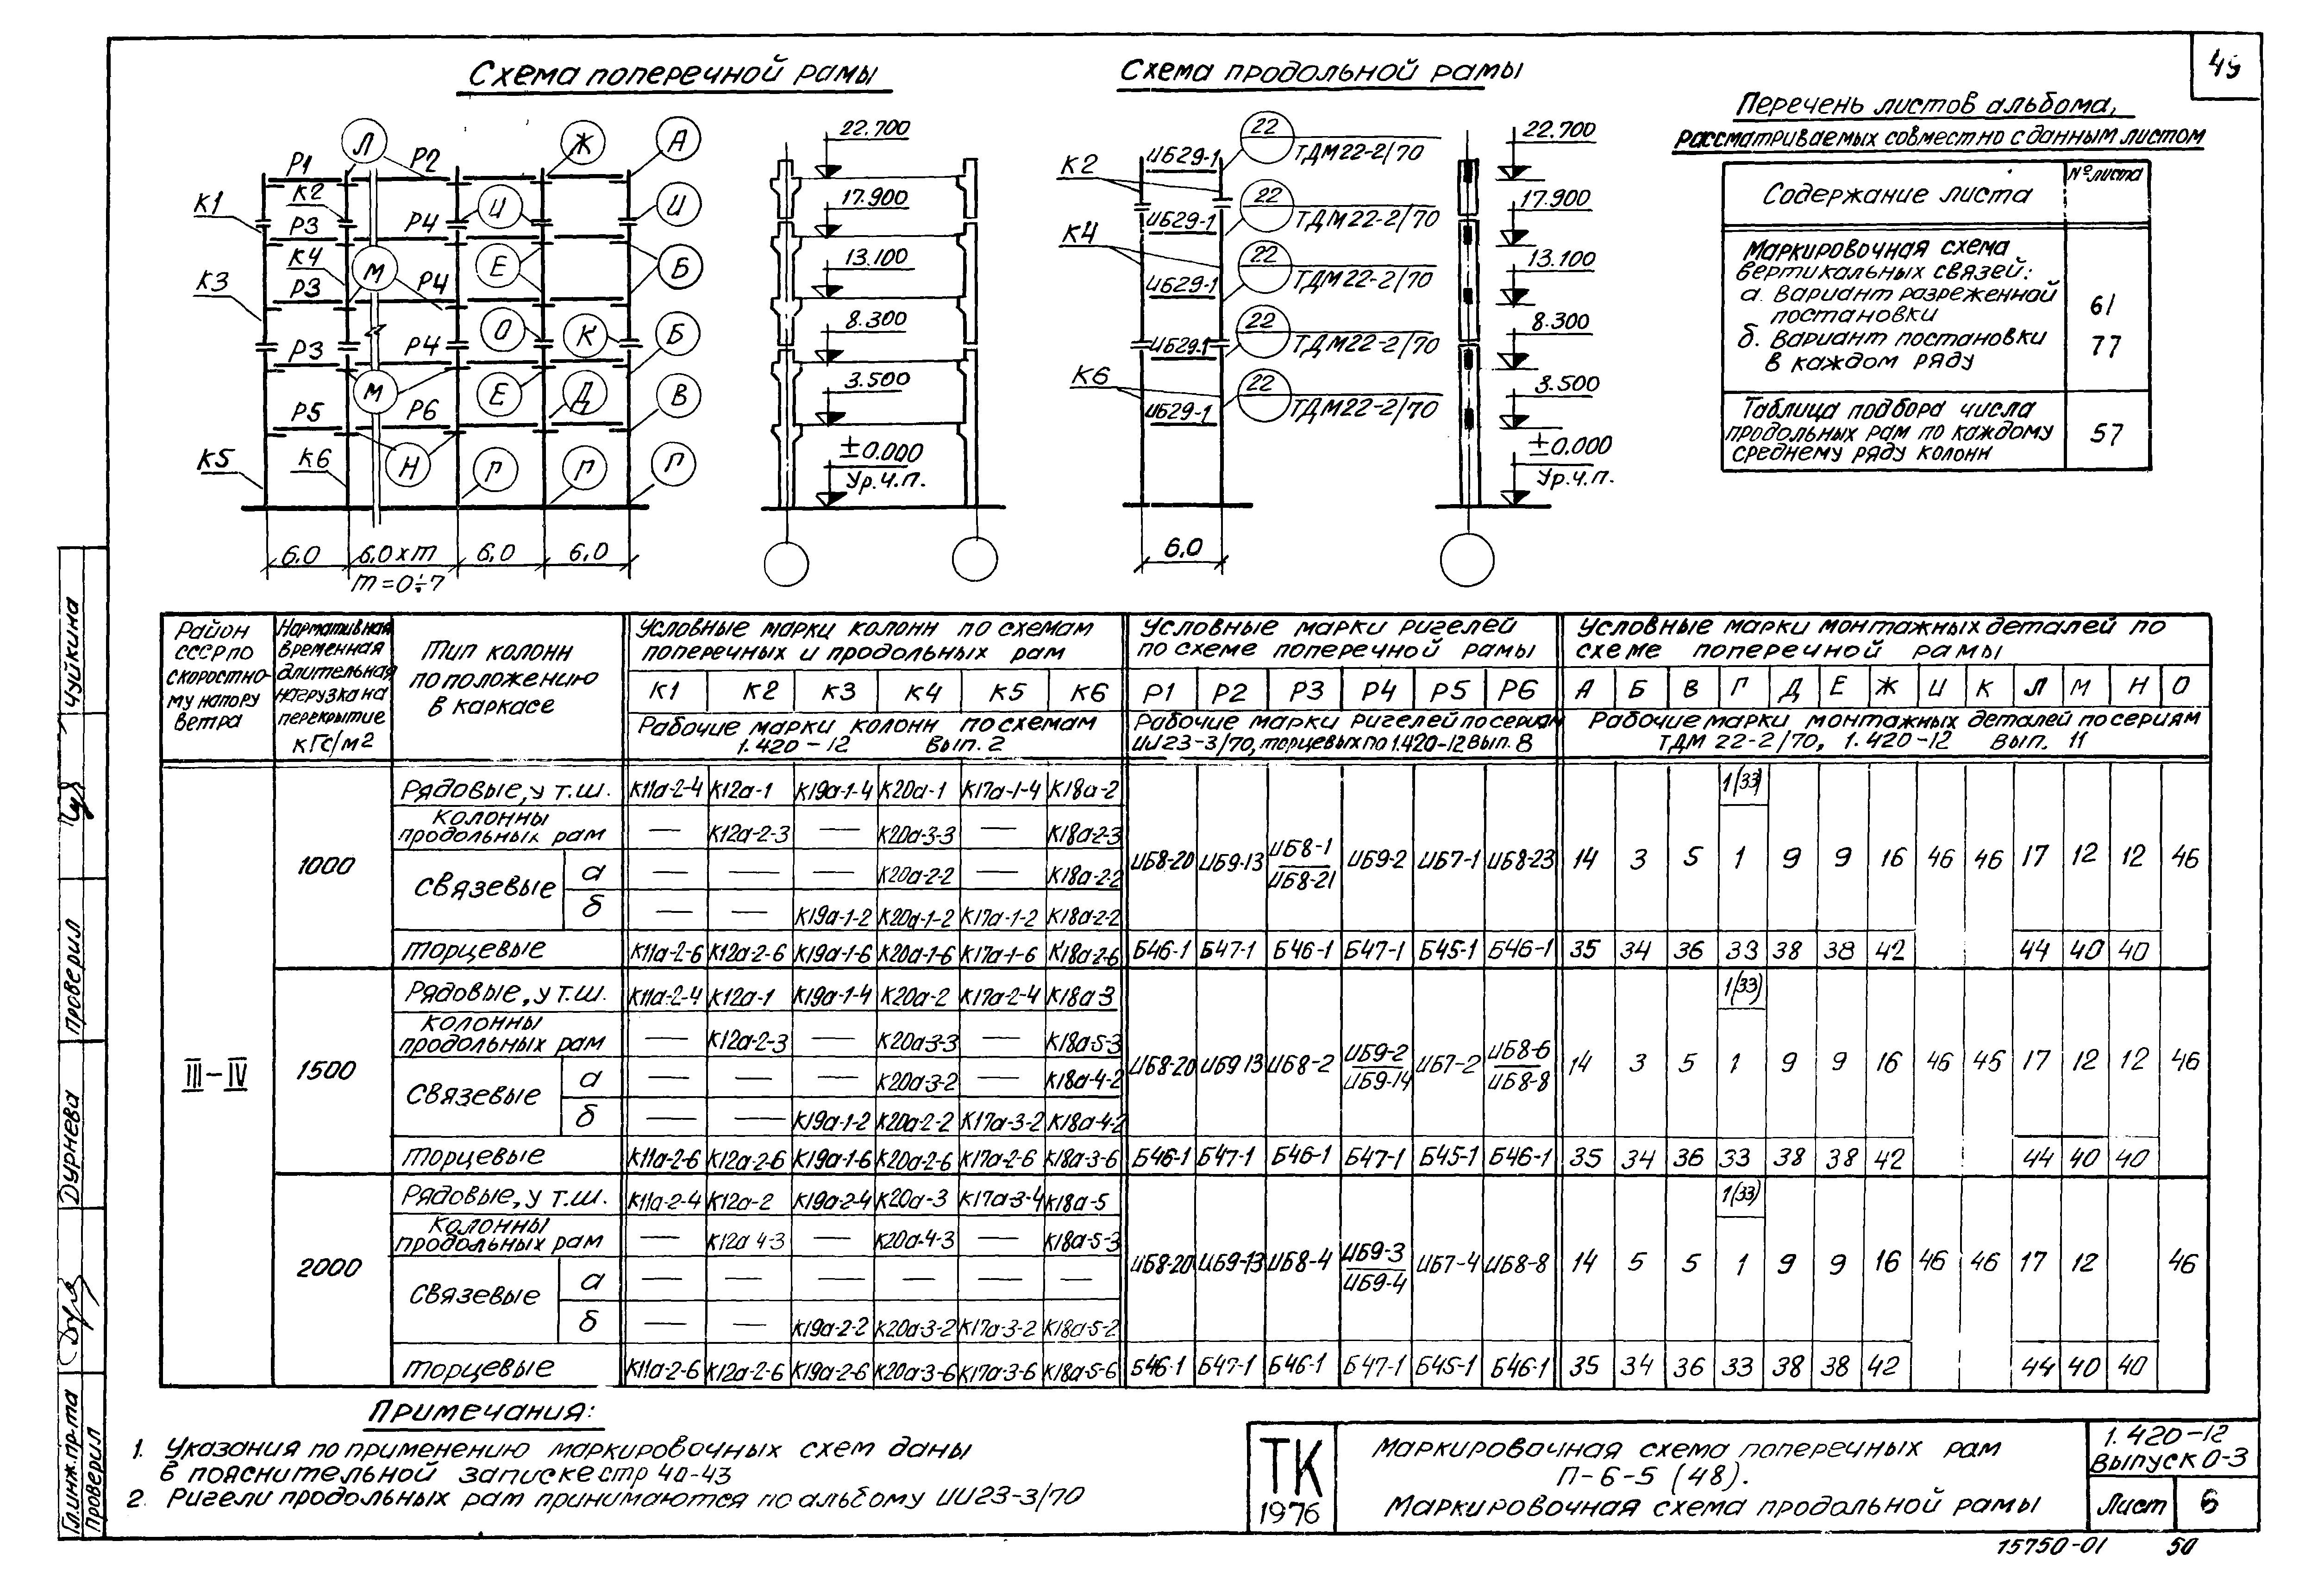 49
Схема поперечной рамы
Схема продольной рамы
Перечень листов альбома,
рассматриваемых совместно с данным листом
Содержание листа
№ листа
Маркировочная схема
вертикальных связей:
а. Вариант разреженной
постановки
61
б. Вариант постановки
в каждом ряду
77
Таблица подбора числа
продольных рам по каждому
среднему ряду колонн
57
Л Ж А
Р1 Р2
К1 К2
И И
Р3 Р4
К3 К4 М Е Б
Р3 Р4
О К Б
Р3 Р4
М Е Д В
Р5 Р6
К5 К6 Н Г Г П
6,0 6,0×m 6,0 6,0
m=0÷7
22.700
17.900
13.100
8.300
3.500
±0.000
Ур.ч.п.
К2 ИБ29-1 22 ТДМ22-2/70
ИБ29-1 22 ТДМ22-2/70
К4 ИБ29-1 22 ТДМ22-2/70
ИБ29-1 22 ТДМ22-2/70
К6 ИБ29-1 22 ТДМ22-2/70
6,0
22.700
17.900
13.100
8.300
3.500
±0.000
Ур.ч.п.
Район
СССР по
скоростно-
му напору
ветра
Нормативная
временная
длительная
нагрузка на
перекрытие
кгс/м2
Тип колонн
по положению
в каркасе
Условные марки колонн по схемам
поперечных и продольных рам
К1 К2 К3 К4 К5 К6
Рабочие марки колонн по схемам
1.420-12 Вып. 2
Условные марки ригелей
по схеме поперечной рамы
Р1 Р2 Р3 Р4 Р5 Р6
Рабочие марки ригелей по сериям
ИИ23-3/70, торцевых по 1.420-12 Вып. 8
Условные марки монтажных деталей по
схеме поперечной рамы
А Б В Г Д Е Ж И К Л М Н О
Рабочие марки монтажных деталей по сериям
ТДМ 22-2/70, 1.420-12 Вып. 11
III-IV
1000
Рядовые, у т.ш. К11а-2-4 К12а-1 К19а-1-4 К20а-1 К17а-1-4 К18а-2
Колонны
продольных рам — К12а-2-3 — К20а-3-3 — К18а-2-3
Связевые
а — — — К20а-2-2 — К18а-2-2
б — — К19а-1-2 К20а-1-2 К17а-1-2 К18а-2-2
ИБ8-20 ИБ9-13 ИБ8-1 ИБ8-21 ИБ9-2 ИБ7-1 ИБ8-23
1(33)
14 3 5 1 9 9 16 46 46 17 12 12 46
Торцевые К11а-2-6 К12а-2-6 К19а-1-6 К20а-1-6 К17а-1-6 К18а-2-6 Б46-1 Б47-1 Б46-1 Б47-1 Б45-1 Б46-1 35 34 36 33 38 38 42 44 40 40
1500
Рядовые, у т.ш. К11а-2-4 К12а-1 К19а-1-4 К20а-2 К17а-2-4 К18а-3
Колонны
продольных рам — К12а-2-3 — К20а-3-3 — К18а-5-3
Связевые
а — — — К20а-3-2 — К18а-4-2
б — — К19а-1-2 К20а-2-2 К17а-3-2 К18а-4-2
ИБ8-20 ИБ9 13 ИБ8-2 ИБ9-2 ИБ9-14 ИБ7-2 ИБ8-6 ИБ8-8
1(33)
14 3 5 1 9 9 16 46 46 17 12 12 46
Торцевые К11а-2-6 К12а-2-6 К19а-1-6 К20а-2-6 К17а-2-6 К18а-3-6 Б46-1 Б47-1 Б46-1 Б47-1 Б45-1 Б46-1 35 34 36 33 38 38 42 44 40 40
2000
Рядовые, у т.ш. К11а-2-4 К12а-2 К19а-2-4 К20а-3 К17а-3-4 К18а-5
Колонны
продольных рам — К12а 4-3 — К20а-4-3 — К18а-5-3
Связевые
а — — — — — —
б — — К19а-2-2 К20а-3-2 К17а-3-2 К18а-5-2
ИБ8-20 ИБ9-13 ИБ8-4 ИБ9-3 ИБ9-4 ИБ7-4 ИБ8-8
1(33)
14 5 5 1 9 9 16 46 46 17 12 46
Торцевые К11а-2-6 К12а-2-6 К19а-2-6 К20а-3-6 К17а-3-6 К18а-5-6 Б46-1 Б47-1 Б46-1 Б47-1 Б45-1 Б46-1 35 34 36 33 38 38 42 44 40 40
Примечания:
1. Указания по применению маркировочных схем даны
в пояснительной записке стр 40-43
2. Ригели продольных рам принимаются по альбому ИИ23-3/70
ТК
1976
Маркировочная схема поперечных рам
П-6-5 (48).
Маркировочная схема продольной рамы
1.420-12
Выпуск 0-3
Лист 6
15750-01 50
Гл.инж.пр-та Дурнева Проверил Чуйкина
Проверил